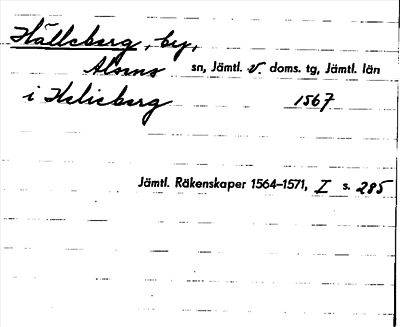 Hälleberg, by,
Alsens sn, Jämtl. v. doms. tg, Jämtl. län
i Helieberg 1567
Jämtl. Räkenskaper 1564–1571, I s. 285